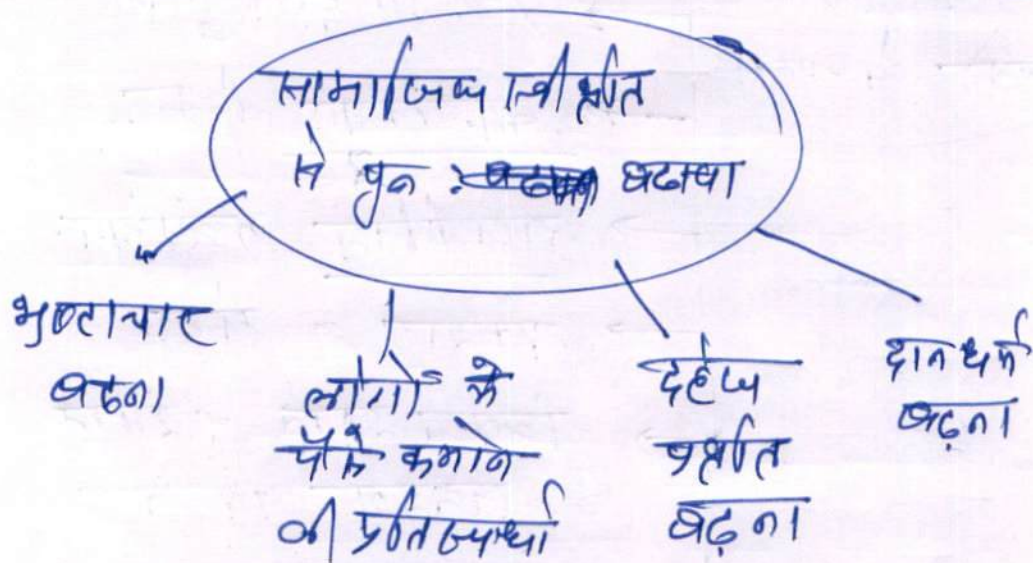 सामाजिक स्वीकृति
से पुन: बढावा
भ्रष्टाचार
बढना
लोगों के
पैसे कमाने
की प्रतिस्पर्धा
दहेज
प्रकृति
बढ़ना
दान धर्म
बढ़ना